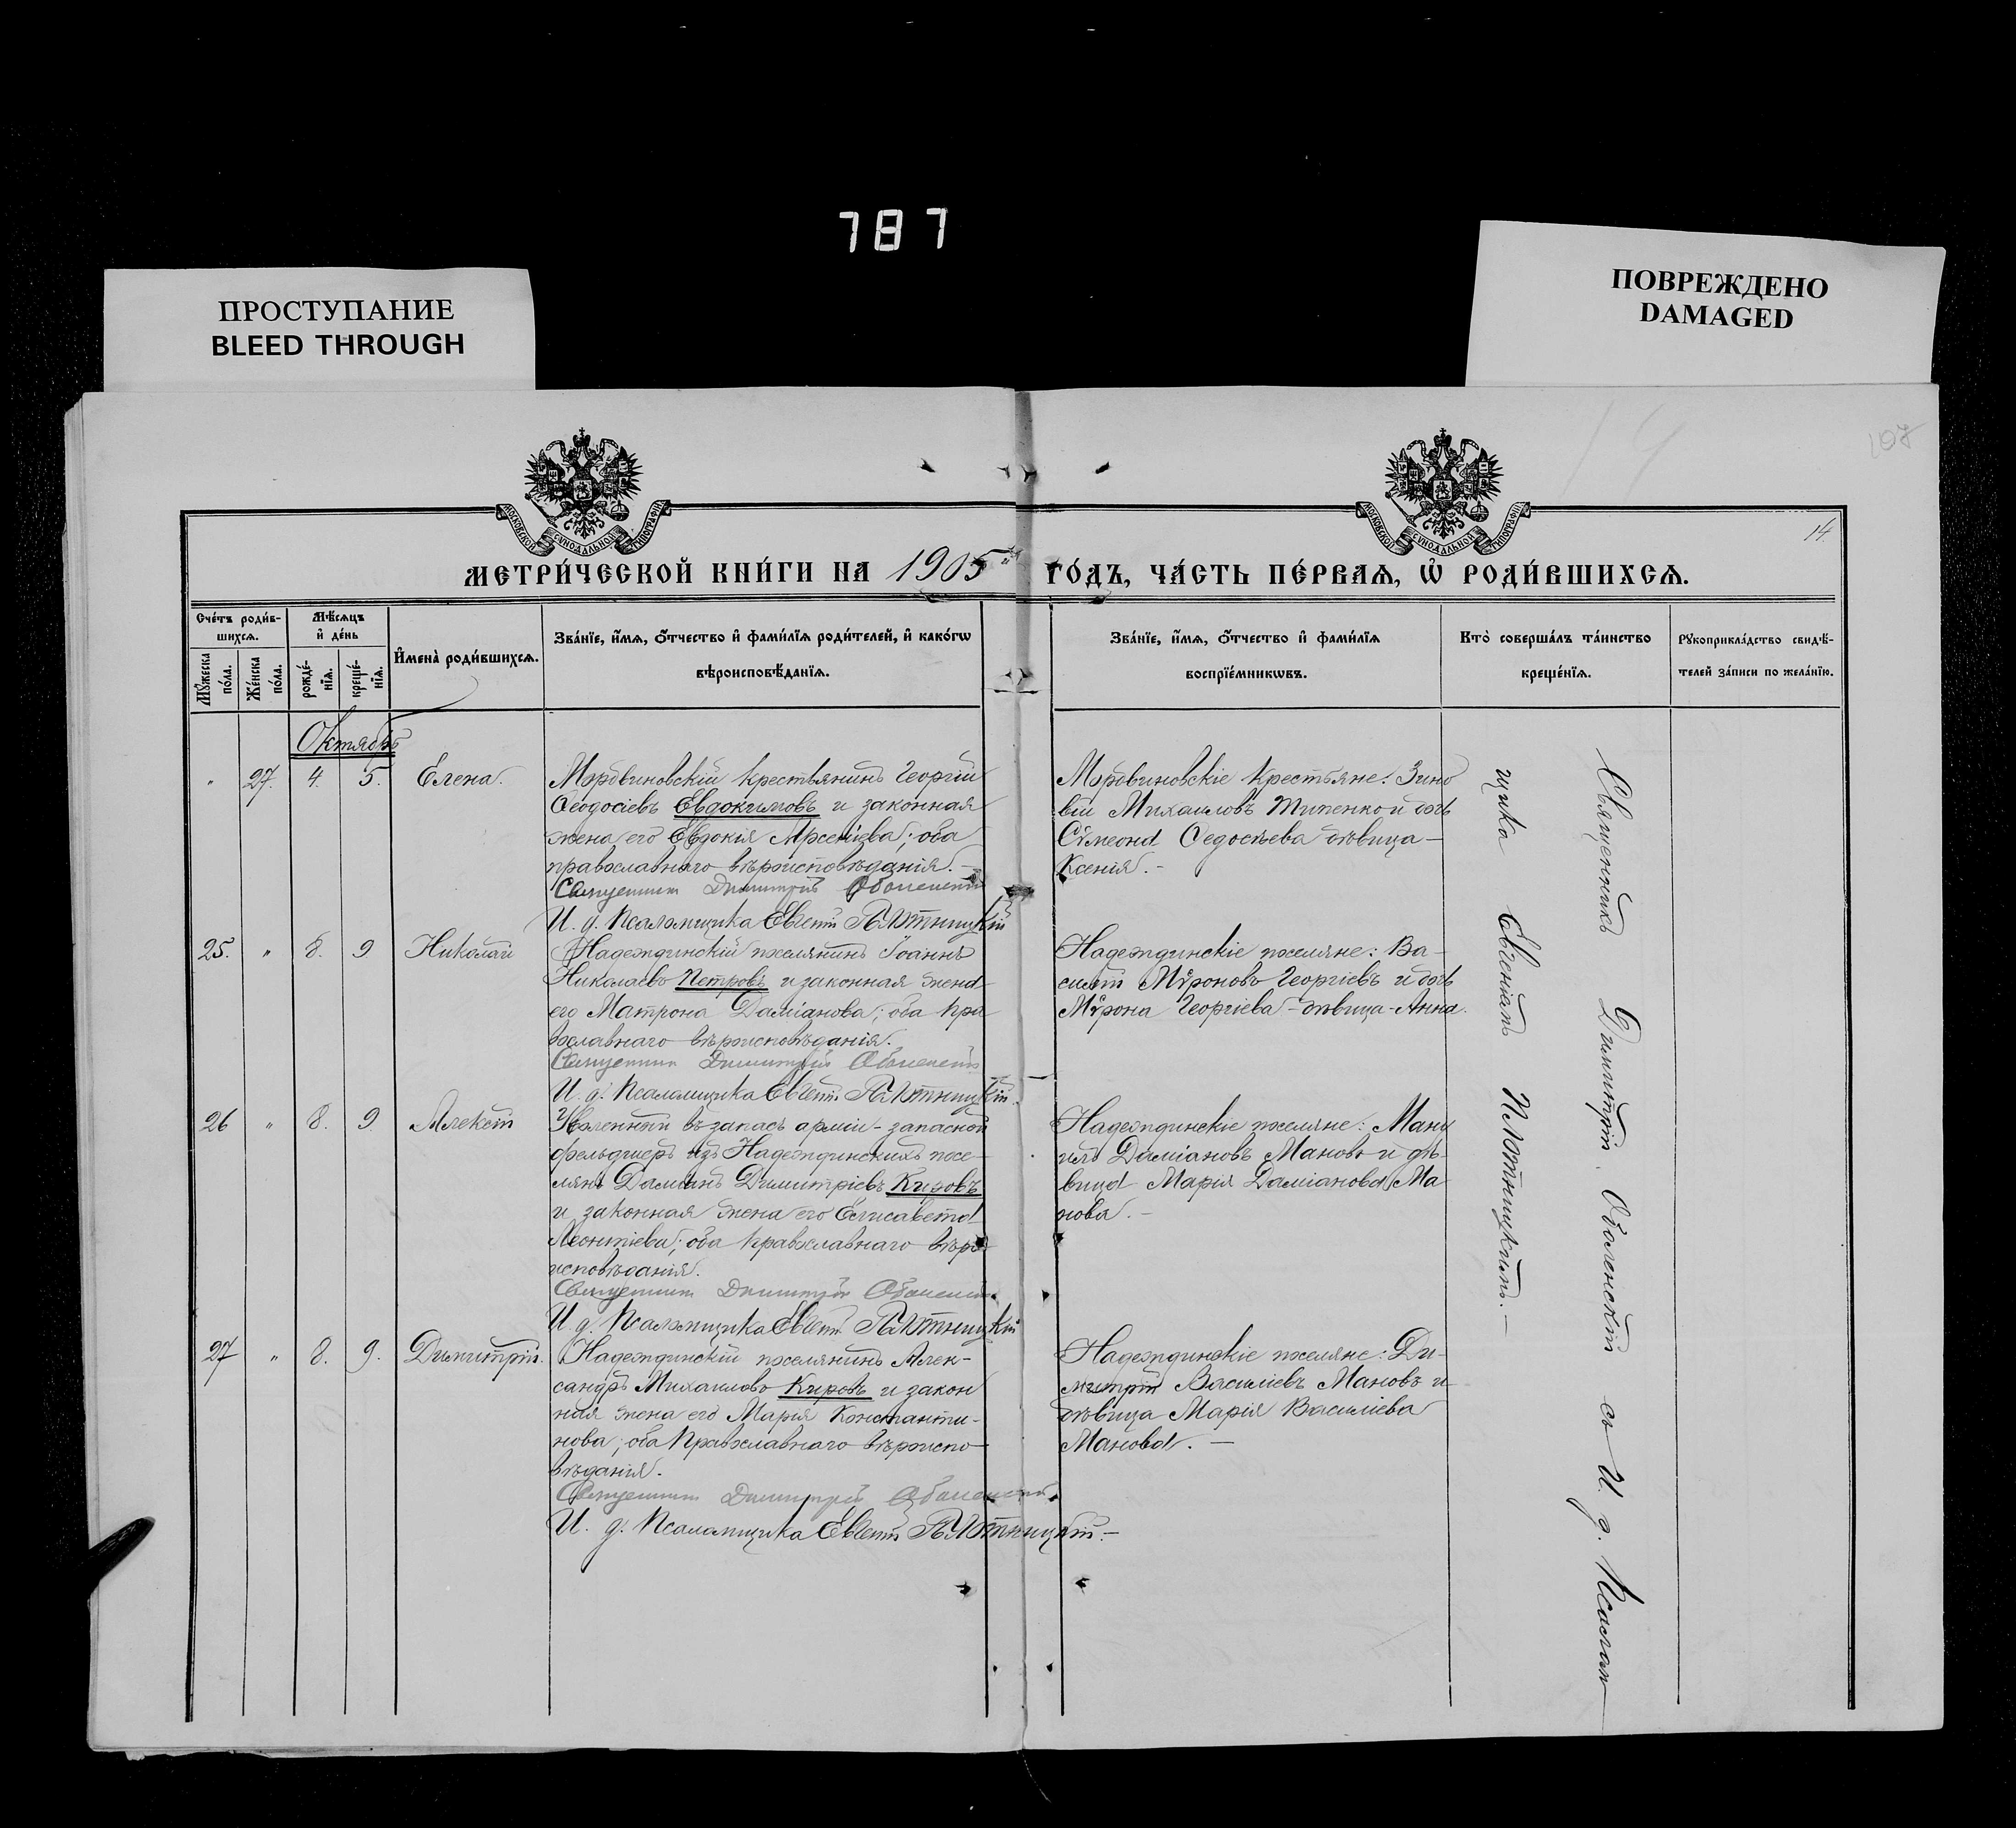 787
ПРОСТУПАНИЕ
BLEED THROUGH
ПОВРЕЖДЕНО
DAMAGED
107
14
МОСКОВСКОЙ СѴНОДАЛЬНОЙ ТИПОГРАФІИ
МОСКОВСКОЙ СѴНОДАЛЬНОЙ ТИПОГРАФІИ
14.
МЕТРИ́ЧЕСКОЙ КНИ́ГИ НА 1905 ГО́ДЪ, ЧА́СТЬ ПЕ́РВАѦ, Ѽ РОДИ́ВШИХСѦ.
Сче́тъ роди́в-
шихсѧ.
Мꙋ́жеска
по́ла.
Же́нска
по́ла.
Мѣ́сѧцъ
и҆ де́нь
рожде́-
нїѧ.
креще́-
нїѧ.
И҆мена̀ роди́вшихсѧ.
Зва́нїе, и҆́мѧ, ѻ҆́тчество и҆ фами́лїѧ роди́телей, и҆ како́гѡ
вѣроисповѣ́данїѧ.
Зва́нїе, и҆́мѧ, ѻ҆́тчество и҆ фами́лїѧ
воспрїе́мникѡвъ.
Кто̀ соверша́лъ та́инство
креще́нїѧ.
Рꙋкоприкла́дство свидѣ́-
телей за́писи по жела́нїю.
Октябрь
" 27. 4. 5. Елена.
Мордвиновскій крестьянинъ Георгій
Ѳеодосіевъ Евдокимовъ и законная
жена его Евдокія Арсеніева; оба
православнаго вѣроисповѣданія.-
Священникъ Димитрій Оболенскій
И. д. Псаломщика Евгеній Плотницкій
Мордвиновскіе крестьяне: Зино
вій Михаиловъ Типенко и дочь
Сѵмеона Ѳедосѣева дѣвица-
Ксенія.-
25. " 8. 9 Николай
Надеждинскій поселянинъ Іоаннъ
Николаевъ Петровъ и законная жена
его Матрона Даміанова; оба пра
вославнаго вѣроисповѣданія.
Священникъ Димитрій Оболенскій
И. д. Псаломщика Евгеній Плотницкій.
Надеждинскіе поселяне: Ва-
силій Мѵроновъ Георгіевъ и дочь
Мѵрона Георгіева-дѣвица-Анна.
26 " 8. 9. Алексій
Уволенный въ запасъ арміи-запасной
фельдшеръ изъ Надеждинскихъ посе-
лянъ Даміанъ Димитріевъ Кировъ
и законная жена его Елисавета
Леонтіева; оба православнаго вѣро
исповѣданія.
Священникъ Димитрій Оболенскій
И. д. Псаломщика Евгеній Плотницкій
Надеждинскіе поселяне: Ману
илъ Даміановъ Мановъ и дѣ-
вица Марія Даміанова Ма
нова.-
27 " 8. 9. Димитрій.
Надеждинскій поселянинъ Алек-
сандръ Михаиловъ Кировъ и закон
ная жена его Марія Константи-
нова; оба православнаго вѣроиспо-
вѣданія.
Священникъ Димитрій Оболенскій.
И. д. Псаломщика Евгеній Плотницкій.-
Надеждинскіе поселяне: Ди-
митрій Василіевъ Мановъ и
дѣвица Марія Василіева
Манова.-
Священникъ Димитрій Оболенскій съ И. д. Псалом-
щика Евгеніемъ Плотницкимъ.-